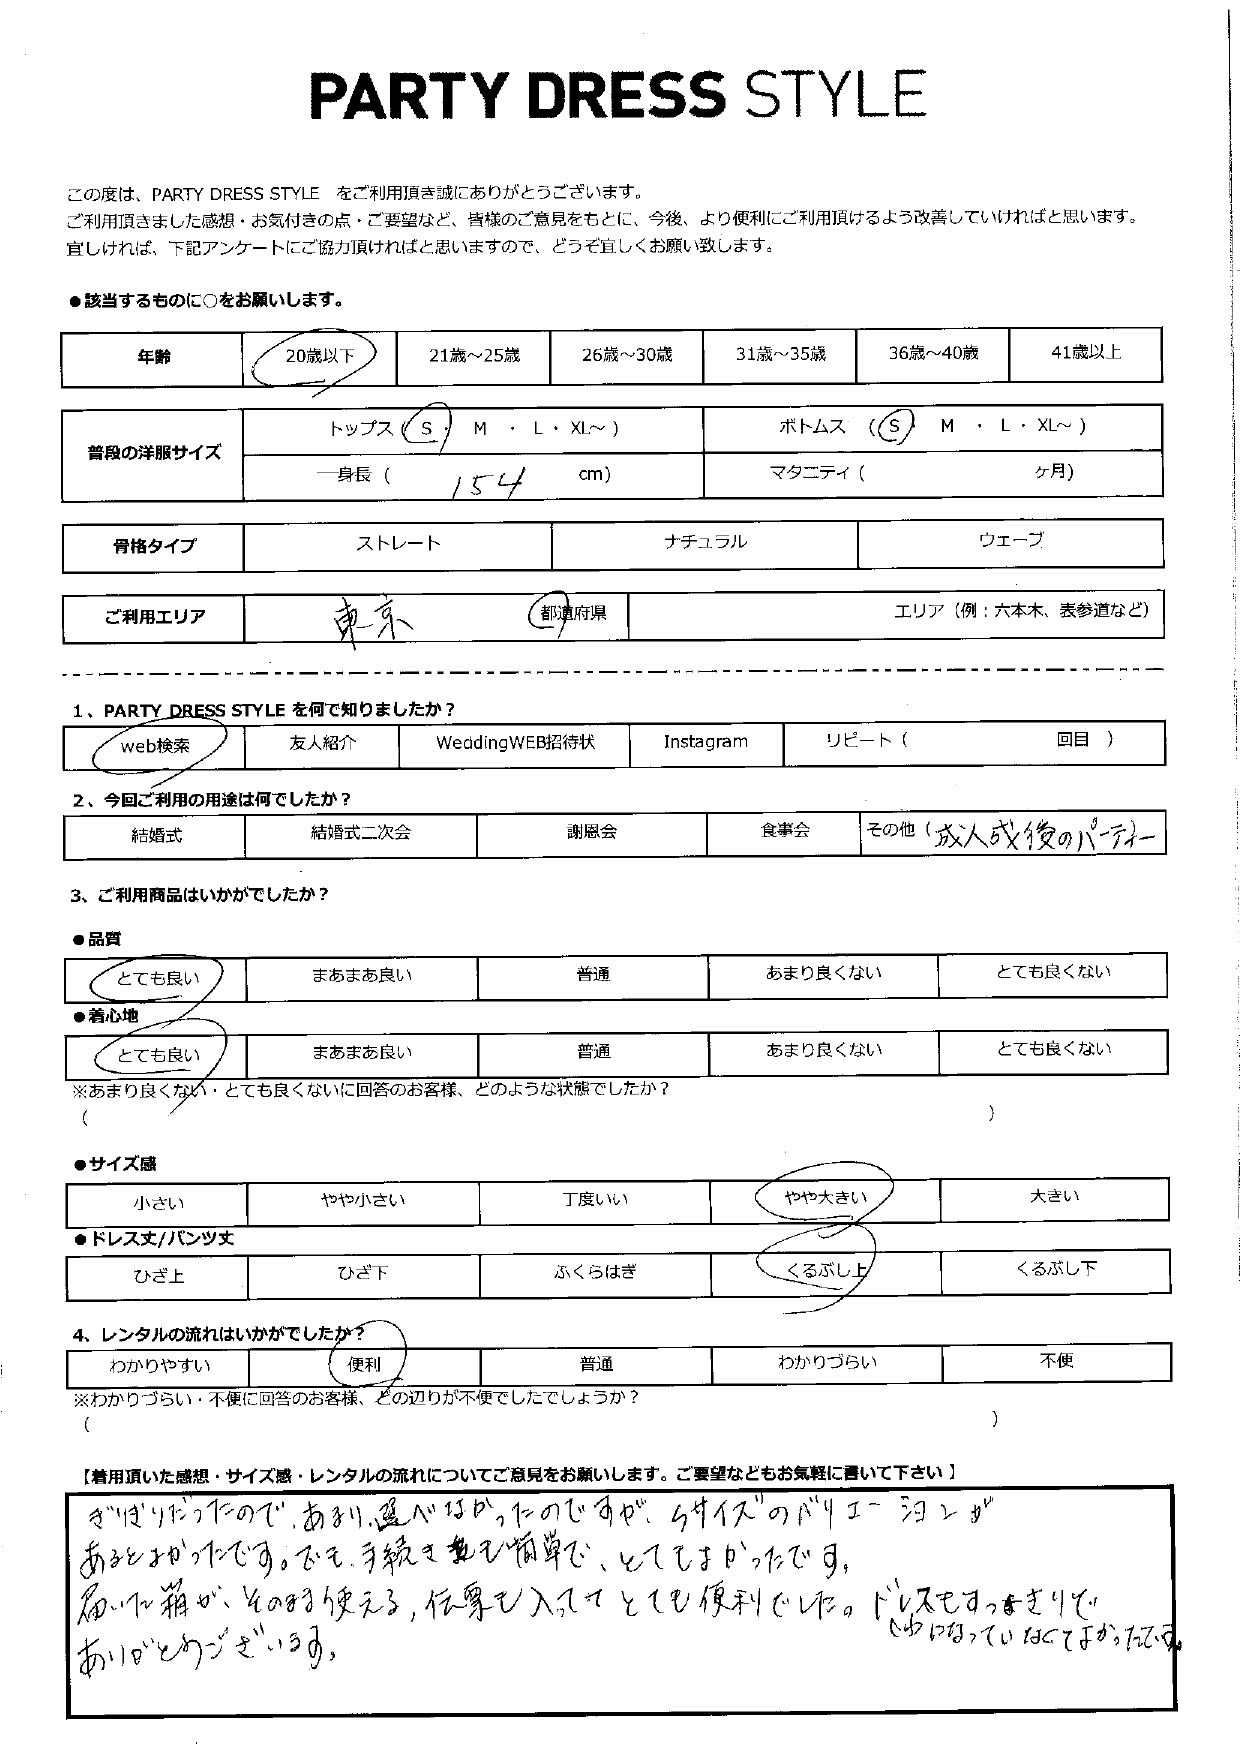 PARTY DRESS STYLE
この度は、PARTY DRESS STYLE をご利用頂き誠にありがとうございます。
ご利用頂きました感想・お気付きの点・ご要望など、皆様のご意見をもとに、今後、より便利にご利用頂けるよう改善していければと思います。
宜しければ、下記アンケートにご協力頂ければと思いますので、どうぞ宜しくお願い致します。
●該当するものに○をお願いします。
年齢 20歳以下 21歳～25歳 26歳～30歳 31歳～35歳 36歳～40歳 41歳以上
普段の洋服サイズ トップス ( S ・ M ・ L ・ XL～ ) ボトムス ( S ・ M ・ L ・ XL～ )
身長 ( 154 cm) マタニティ ( ヶ月)
骨格タイプ ストレート ナチュラル ウェーブ
ご利用エリア 東京 都道府県 エリア（例：六本木、表参道など）
1、PARTY DRESS STYLE を何で知りましたか？
web検索 友人紹介 WeddingWEB招待状 Instagram リピート ( 回目 )
2、今回ご利用の用途は何でしたか？
結婚式 結婚式二次会 謝恩会 食事会 その他 ( 成人式後のパーティー
3、ご利用商品はいかがでしたか？
●品質
とても良い まあまあ良い 普通 あまり良くない とても良くない
●着心地
とても良い まあまあ良い 普通 あまり良くない とても良くない
※あまり良くない・とても良くないに回答のお客様、どのような状態でしたか？
( )
●サイズ感
小さい やや小さい 丁度いい やや大きい 大きい
●ドレス丈/パンツ丈
ひざ上 ひざ下 ふくらはぎ くるぶし上 くるぶし下
4、レンタルの流れはいかがでしたか？
わかりやすい 便利 普通 わかりづらい 不便
※わかりづらい・不便に回答のお客様、どの辺りが不便でしたでしょうか？
( )
【着用頂いた感想・サイズ感・レンタルの流れについてご意見をお願いします。ご要望などもお気軽に書いて下さい】
ぎりぎりだったので、あまり選べなかったのですが、Sサイズのバリエーションが
あるとよかったです。でも、手続きも簡単で、とてもよかったです。
届いた箱が、そのまま使える、伝票も入ってて とても便利でした。ドレスもすっきりで
しわになっていなくてよかったです。
ありがとうございます。